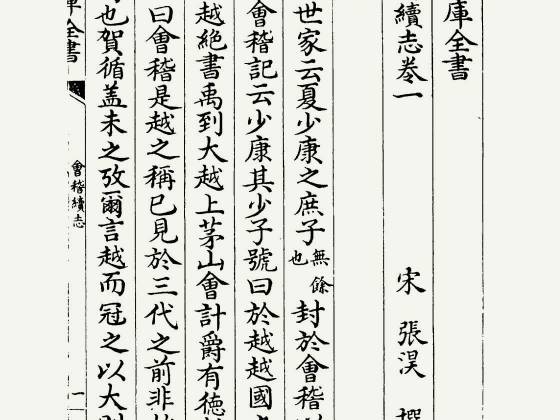 庫全書
續志卷一
宋 張淏 撰
世家云夏少康之庶子無餘也封於會稽
會稽記云少康其少子號曰於越越國
越絶書禹到大越上茅山會計爵有徳
曰會稽是越之稱已見於三代之前非
也賀循盖未之攷爾言越而冠之以大
庫全書
會稽續志
一